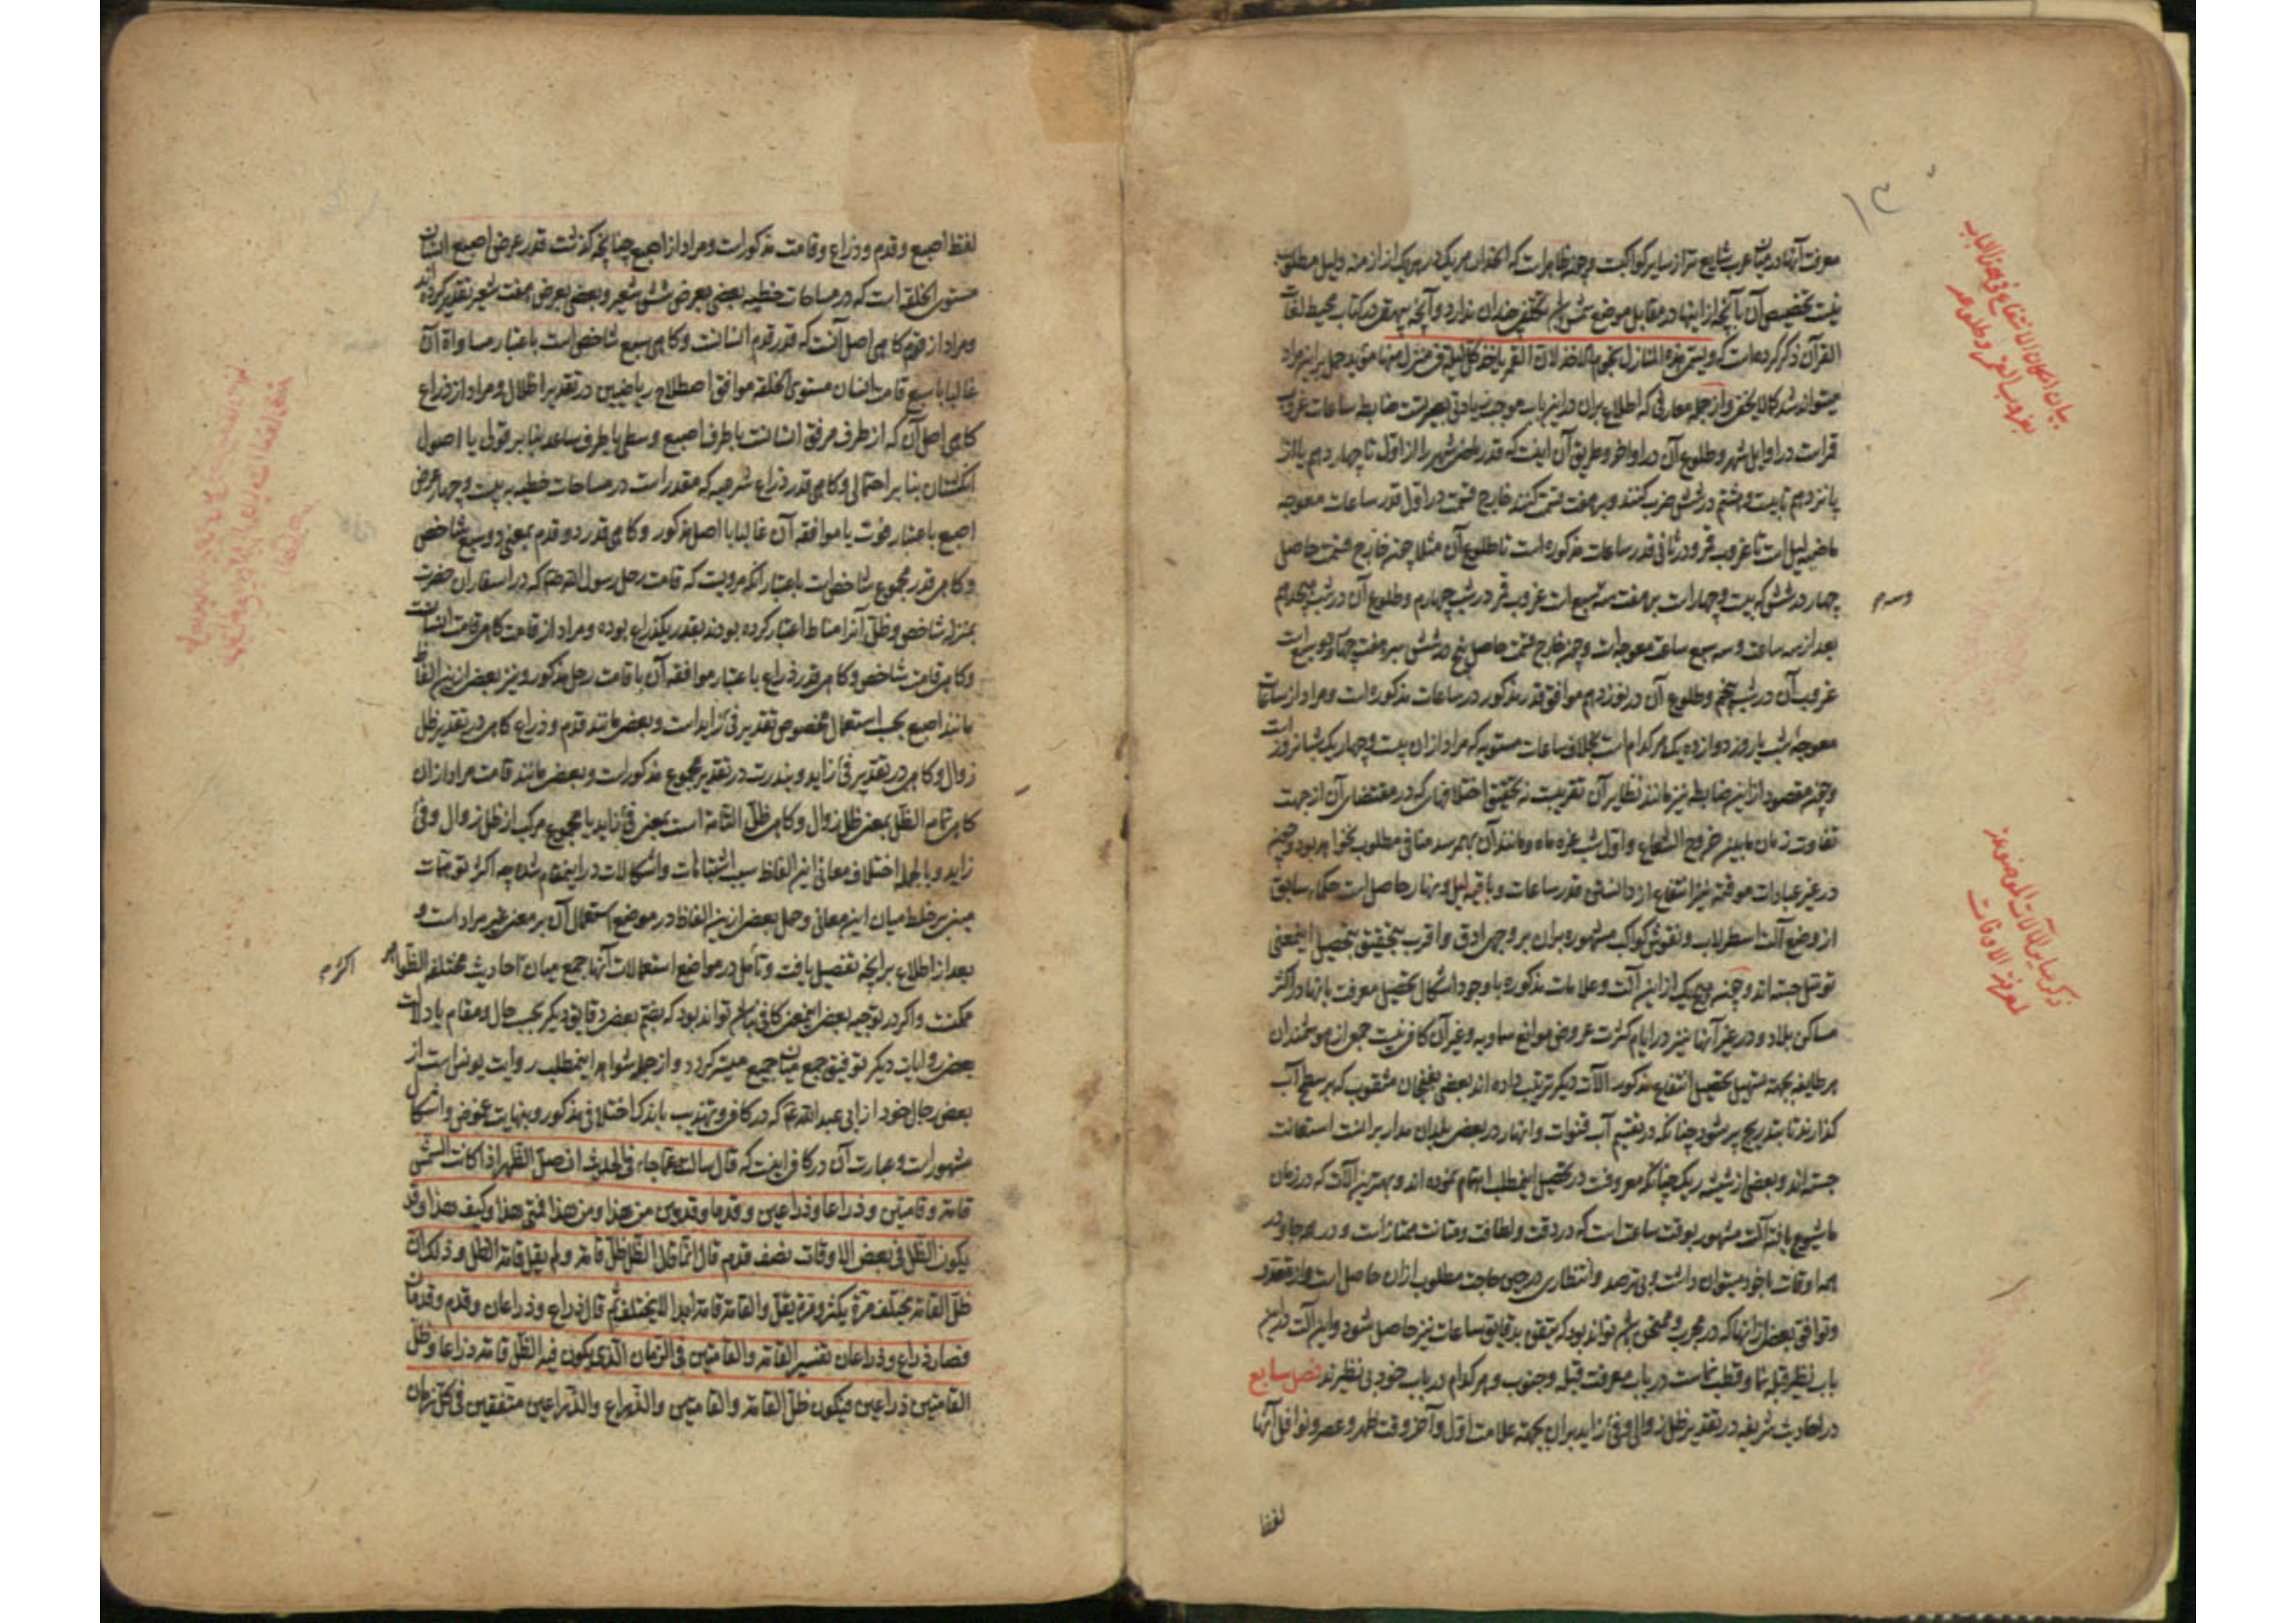 معرفت آنها در میان عرب شایع‌تر از سایر کواکبست وچه ظاهرات که انحدار هر یک در هر یک از ازمنه دلیل مطلوب
نیست تخصیص آن بآنچه از اینها در مقابل موضع شمس باشد تخفی چندان ندارد وآنچه بیهقی در کتاب محیط لغات
القرآن ذکر کرده است که ویسمی هذه المنازل نجوم الاخذ لان القمر یاخذ کل لیلة فی منزل منها
میتواند شد کما لایخفی واز جمله معارفی که اطلاع بران در اینباب موجب زیادتی بصیرتست ضابطه ساعات غروب
قمر است در اوایل شهر وطلوع آن در اواخر وطریق آن اینست که قدر ماضی شهر را از اول تا چهاردهم یا از
پانزدهم تا بیست وهشتم در شش ضرب کنند وبر هفت قسمت کنند خارج قسمت در اول قدر ساعات معوجه
ماضیه لیل است تا غروب قمر ودر ثانی قدر ساعات مذکوره است تا طلوع آن مثلا چون خارج قسمت حاصل
چهار در شش که بیست وچهار است بر هفت سه سبع است غروب قمر در شب چهارم وطلوع آن در شب هجدهم
وسه م
بعد از سه ساعت وسه سبع ساعت معوجه است وچون خارج قسمت حاصل پنج در شش بر هفت چهار ودو سبع است
غروب آن در شب پنجم وطلوع آن در نوزدهم موافق قدر مذکور در ساعات مذکوره است ومراد از ساعات
معوجه شب یا روز دوازده یک هر کدام است بخلاف ساعات مستویه که مراد ازان بیست وچهار یک شبانروز است
وچون مقصود از این ضابطه نیز مانند نظایر آن تقریبست نه تحقیق اختلافهائی که در مقتضای آن از جهت
تفاوت زمان مابین خروج الشعاع واول شب غره ماه ومانند آن بهم رسد منافی مطلوب نخواهد بود وچون
در غیر عبادات موقته نیز انتفاع از دانستن قدر ساعات وباقی لیل ونهار حاصل است حکمای سابق
از وضع آلت اسطرلاب ونقوش کواکب مشهوره بران بر وجهی ادق واقرب بتحقیق بتحصیل اینمعنی
توسل جسته اند وچون هیچیک از این آلت وعلامات مذکوره با وجود اشکال تحصیل معرفت بآنها در اکثر
مساکن بلاد ودر غیر آنها نیز در ایام کثرت عروض موانع سماویه وغیر آن کافی نیست جمعی از هوشمندان
هر طایفه بجهة تسهیل تحصیل انتفاع مذکور آلات دیگر ترتیب داده اند بعضی بفنجان مثقوب که بر سطح آب
گذارند تا بتدریج پر شود چنانکه در تقسیم آب قنوات وانهار در بعض بلدان مدار برانست استعانت
جسته اند وبعضی از شیشه ریگ چنانکه معروفست در تحصیل اینمطلب اهتمام نموده اند وبهترین آلات که در زمان
ما شیوع یافته آلت مشهور بوقت ساعت است که در دقت ولطافت ومتانت ممتاز است ودر همه جا ودر
همه اوقات با خود میتوان داشت وبی ترصد وانتظاری در حین حاجت مطلوب ازان حاصل است واز تعدد
وتوافق بعضی از آنها که در مجرب وممتحن باشد تواند بود که تیقن بدقایق ساعات نیز حاصل شود واین آلت در این
باب نظیر قبله نما وقطب نماست در باب معرفت قبله وجنوب وهر کدام در باب خود بی نظیرند فصل سابع
در احادیث شریفه در تقدیر ظل زوال وفیء زاید بران بجهة علامت اول وآخر وقت ظهر وعصر ونوافل آنها
لفظ
۱۳۰
بیان امکان الانتفاع فی هذا الباب
بغروب القمر وطلوعه
ذکر سایر الآلات الموضوعة
لمعرفة الاوقات
لفظ اصبع وقدم وذراع وقامت مذکور است ومراد از اصبع چنانچه گذشت قدر عرض اصبع انسان
مستوی الخلقه است که در مساحات خطیه بعضی بعرض شش شعیر وبعضی بعرض هفت شعیر تقدیر کرده اند
ومراد از قدم گاهی اصل آنست که قدر قدم انسانست وگاهی سبع شاخص است باعتبار مساواة آن
غالبا با سبع قامت انسان مستوی الخلقه موافق اصطلاح ریاضیین در تقدیر اظلال ومراد از ذراع
گاهی اصل آن که از طرف مرفق انسانست تا طرف اصبع وسطی یا طرف ساعد بنا بر قولی یا اصول
انگشتان بنا بر احتمالی وگاهی قدر ذراع شرعیه که مقدر است در مساحات خطیه به بیست وچهار عرض
اصبع باعتبار قوت یا موافقه آن غالبا با اصل مذکور وگاهی قدر دو قدم بمعنی دو سبع شاخص
وگاهی قدر مجموع شاخص است باعتبار آنکه مرویست که قامت رحل رسول الله ص که در اسفار آن حضرت
بمنزله شاخص وظل آنرا مناط اعتبار کرده بودند بقدر یکذراع بوده ومراد از قامت گاهی قامت انسانست
وگاهی قامت شاخص وگاهی قدر ذراع باعتبار موافقه آن با قامت رحل مذکور ونیز بعضی از این الفاظ
مانند اصبع بحسب استعمال مخصوص تقدیر فیء زاید است وبعضی مانند قدم وذراع گاهی در تقدیر ظل
زوال وگاهی در تقدیر فیء زاید وبندرت در تقدیر مجموع مذکور است وبعضی مانند قامت مراد ازان
گاهی قامه الظل بمعنی ظل زوال وگاهی ظل القامة است بمعنی فیء زاید یا مجموع مرکب از ظل زوال وفیء
زاید وبالجمله اختلاف معانی این الفاظ سبب اشتباهات واشکالات در اینمقام شده چه اکثر توهمات
مبنی بر خلط میان این معانی وحمل بعضی از این الفاظ در موضع استعمال آن بر معنی غیر مراد است و
بعد از اطلاع بر آنچه تفصیل یافت وتأمل در مواضع استعمالات آنها جمع میان احادیث مختلفه الظواهر
اکثر م
ممکنست واگر در توجیه بعضی اینمعنی کافی نباشد تواند بود که بضم بعضی دقایق دیگر بحسب حال ومقام یا دلالت
بعضی روایات دیگر توفیق جمع میان جمیع میسر گردد واز جمله شواهد اینمطلب روایت یونس است از
بعض رجال خود از ابی عبدالله ع که در کافی وتهذیب با اندک اختلافی مذکور وبنهایت غموض واشکال
مشهور است وعبارت آن در کافی اینست که قال سالته عما جاء فی الحدیث ان صل الظهر اذا کانت الشمس
قامة وقامتین وذراعا وذراعین وقدما وقدمین من هذا ومن هذا فمتی هذا وکیف هذا وقد
یکون الظل فی بعض الاوقات نصف قدم قال انما قال ظل القامة ولم یقل قامة الظل وذلک ان
ظل القامة یختلف مرة یکثر ومرة یقل والقامة قامة ابدا لا یختلف ثم قال ذراع وذراعان وقدم وقدمان
فصار ذراع وذراعان تفسیر القامة والقامتین فی الزمان الذی یکون فیه الظل قامة ذراعا وظل
القامتین ذراعین فیکون ظل القامة والقامتین والذراع والذراعین متفقین فی کل زمان